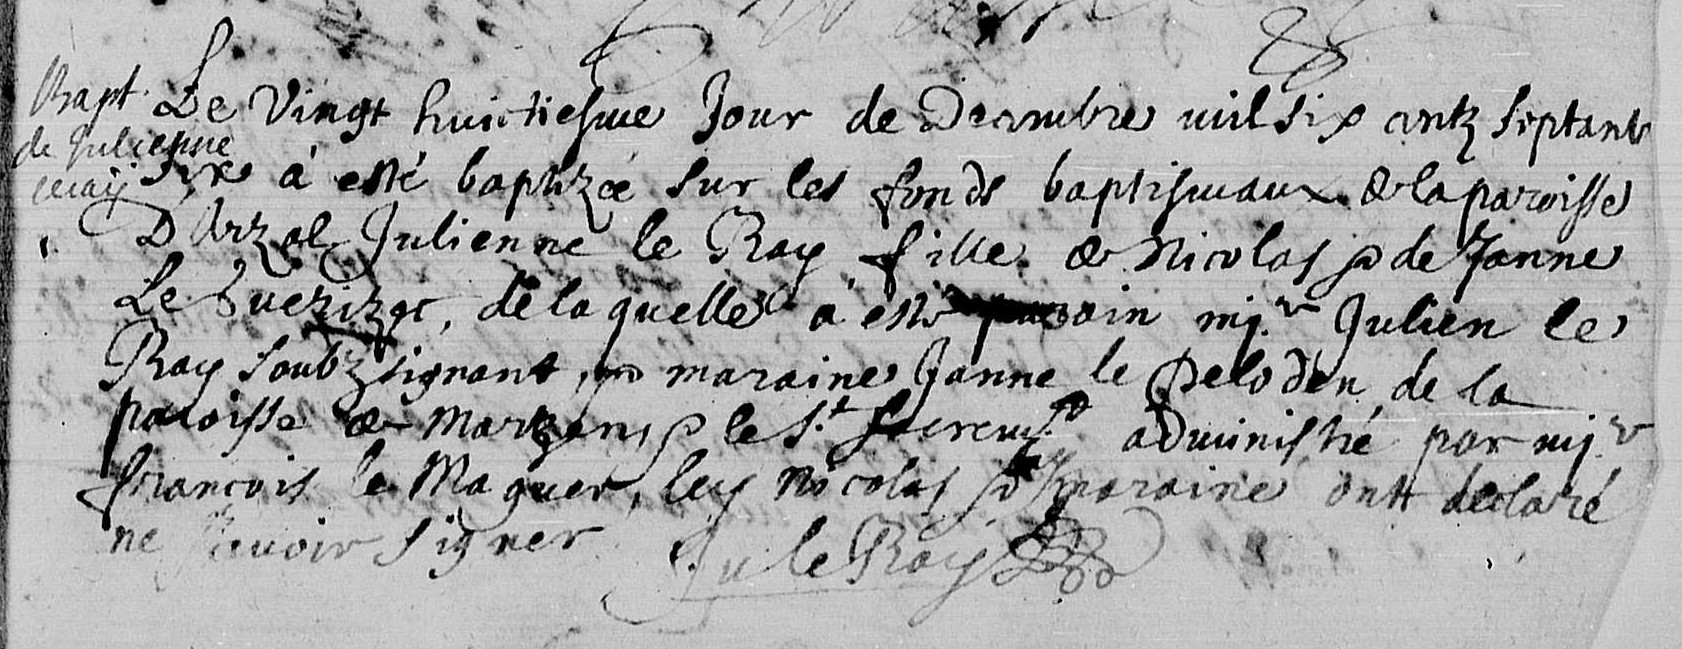 Bapt.
de Julienne
Le Vingt huictiesme Jour de Decembre mil six centz septante
six à esté baptizée sur les fonds baptismaux de la paroisse
D'Arzal Julienne le Ray fille de Nicolas & de Janne
Le, de laquelle à esté parain mir Julien le
Ray soubzsignant, & maraine Janne le Peloden, de la
paroisse de Marzen, & le St. Sacremt. administré par mir
François le Maguer, ley Nicolas & maraine ontt declaré
ne scavoir signer Ju le Ray